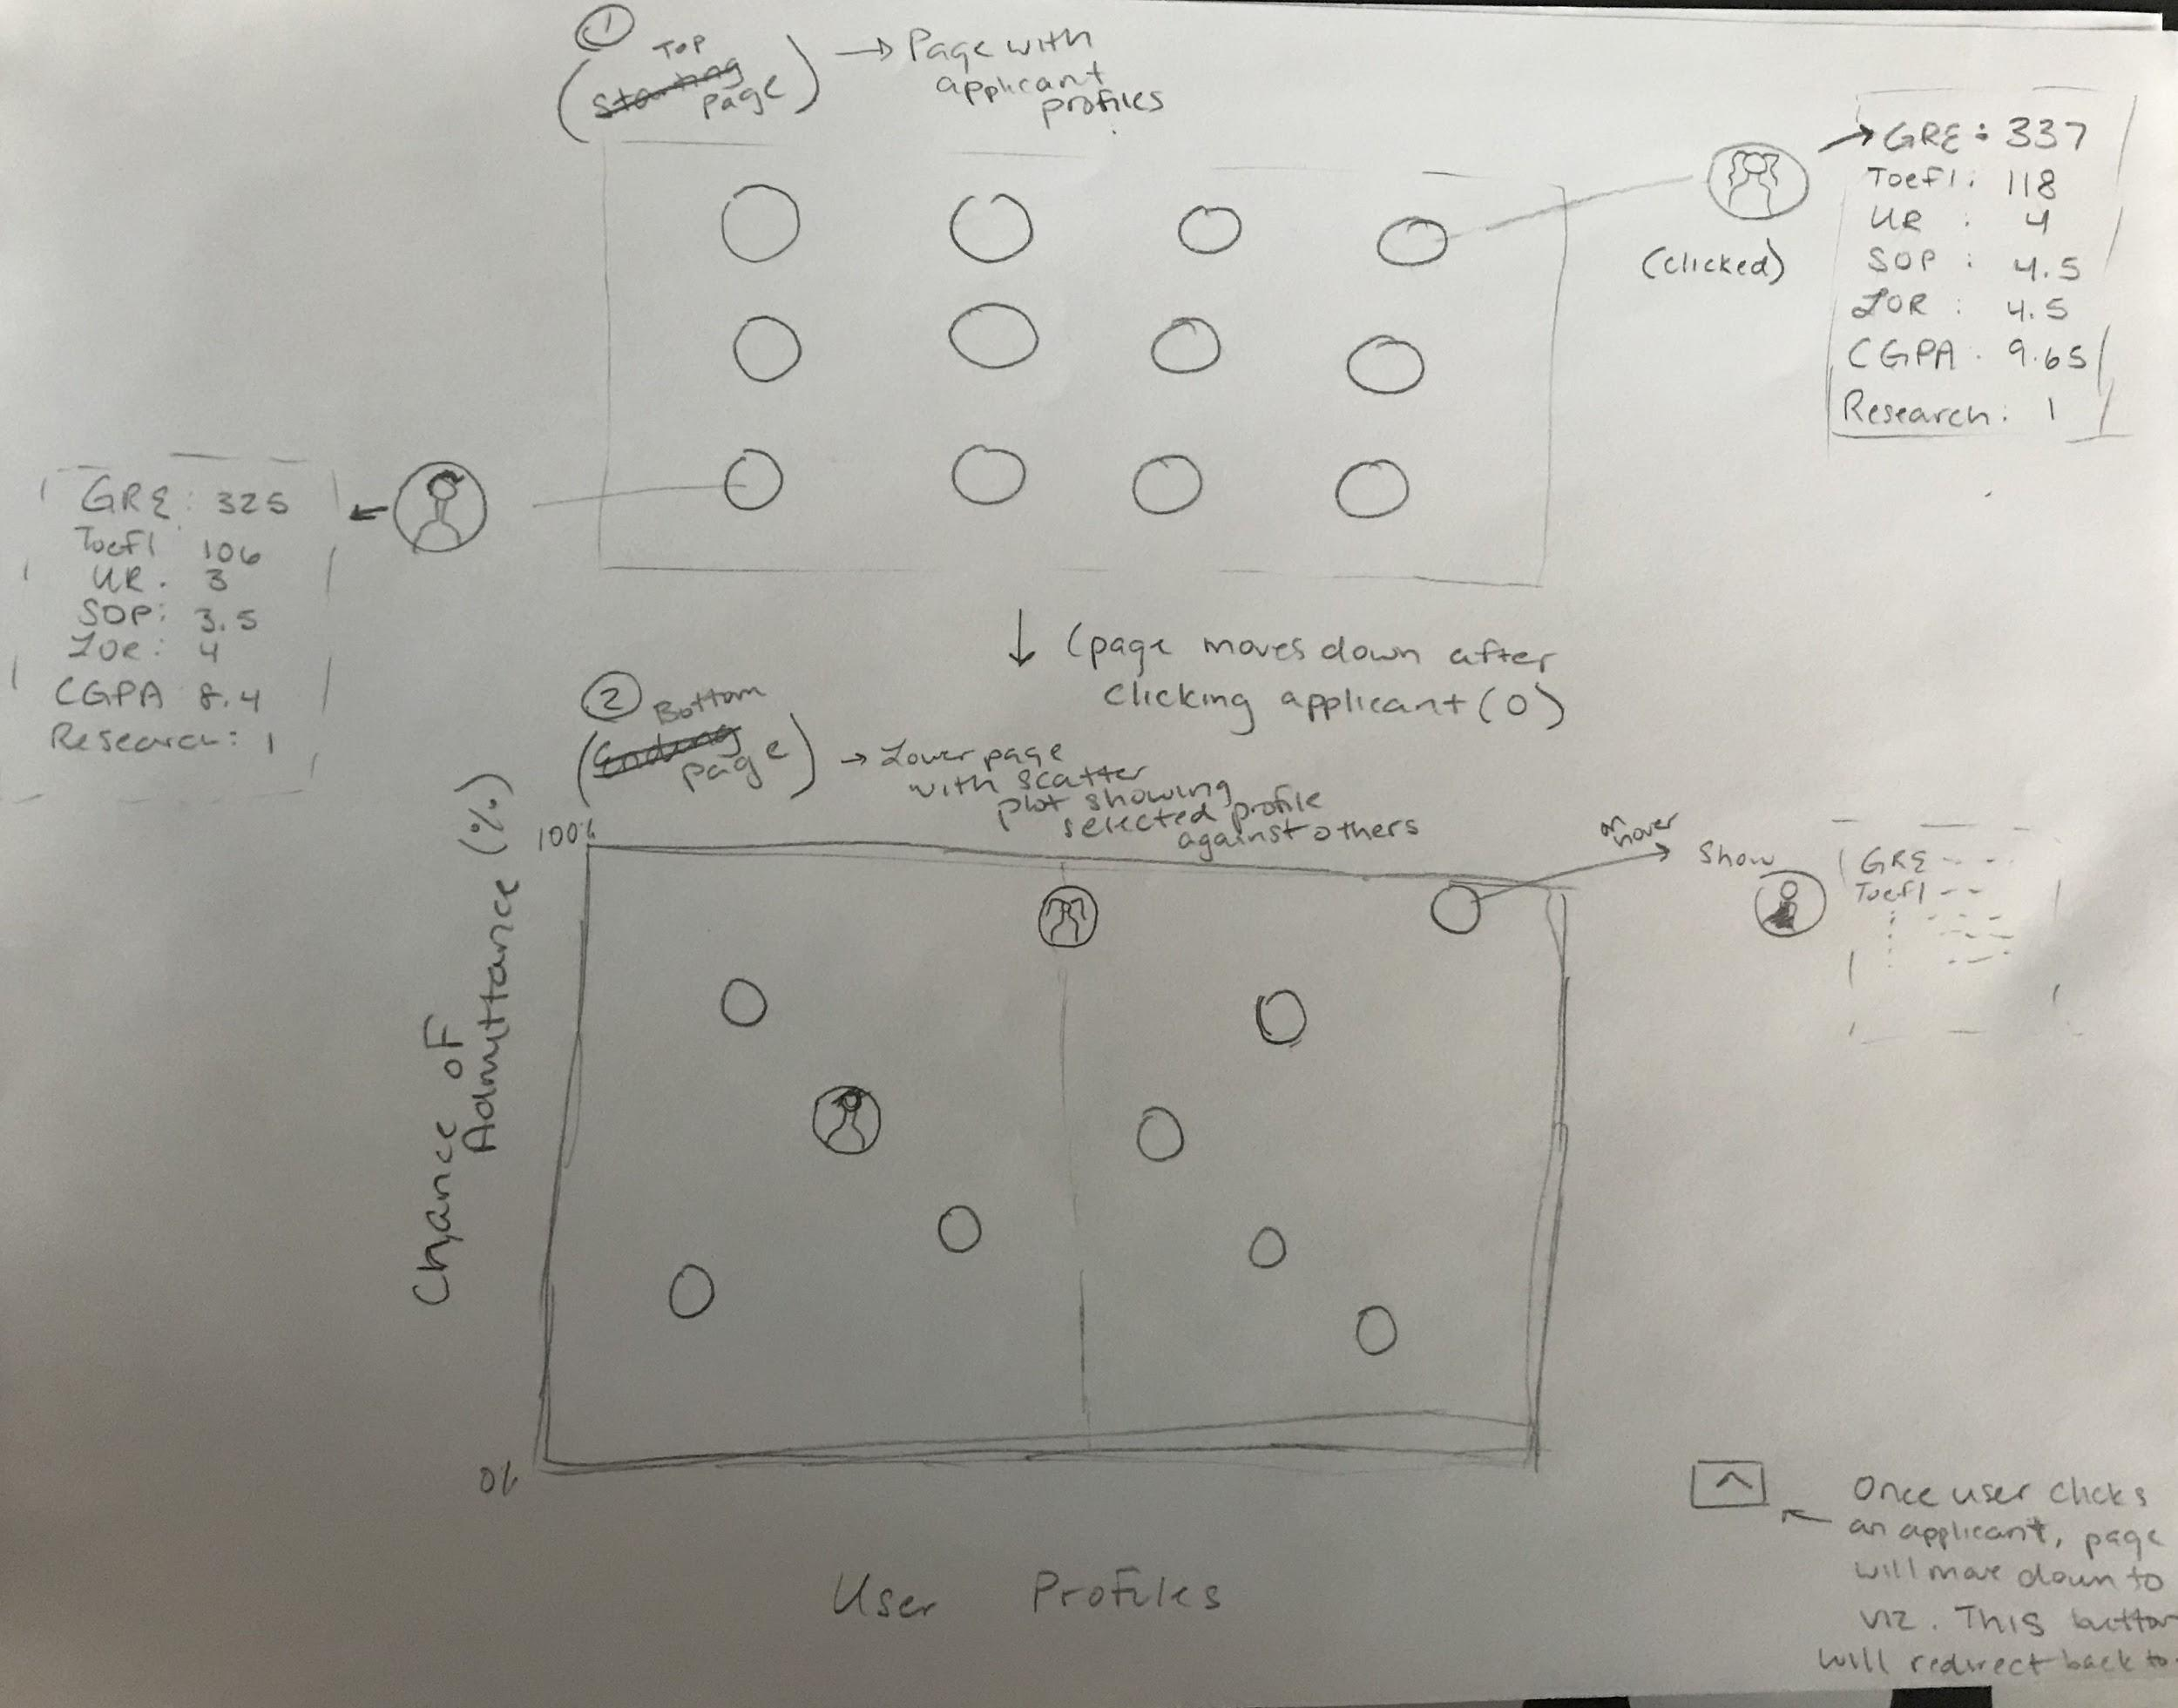 ①
(Starting TOP page) → Page with
applicant
profiles
GRE: 337
Toefl: 118
UR : 4
SOP : 4.5
LOR : 4.5
CGPA : 9.65
Research: 1
(clicked)
GRE: 325
Toefl 106
UR. 3
SOP: 3.5
LOR: 4
CGPA 8.4
Research: 1
↓ (page moves down after
clicking applicant (O)
②
(Ending Bottom page) → Lower page
with scatter
plot showing
selected profile
against others
100%
Chance of
Admittance (%)
0%
User Profiles
on hover
Show
GRE - - -
Toefl - -
^
Once user clicks
an applicant, page
will move down to
viz. This button
will redirect back to